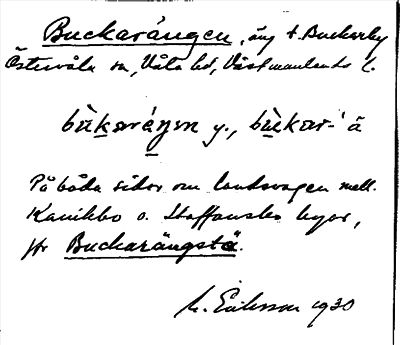 Buckarängen, äng t. Buckarby
Östervåla sn, Våla hd, Västmanlands l.
bùkaráŋən y., bùkar-' ä
På båda sidor om landsvagen mell.
Kanikbo o. Staffansbo byar,
jfr Buckarängstä.
M. Eriksson 1930